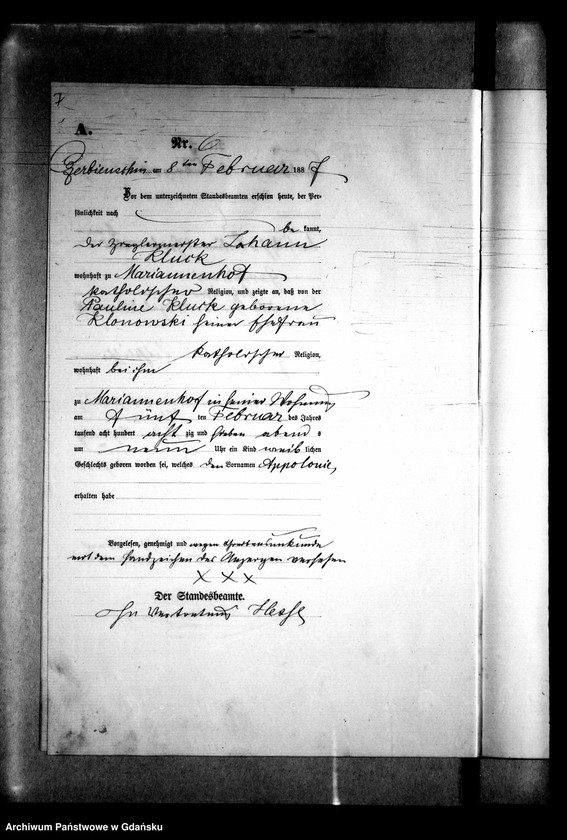 7
A.
Nr. 6
Czerbienschin am 8 ten Februar 1887
Vor dem unterzeichneten Standesbeamten erschien heute, der Per-
sönlichkeit nach
be kannt,
der Ziegelmeister Johann
Kluck
wohnhaft zu Mariannenhof
katholischer Religion, und zeigte an, daß von der
Pauline Kluck geborene
Klonowski seiner Ehefrau
katholischer Religion,
wohnhaft bei ihm
zu Mariannenhof in seiner Wohnung
am fünf ten Februar des Jahres
tausend acht hundert acht zig und sieben abend s
um neun Uhr ein Kind weib lichen
Geschlechts geboren worden sei, welches den Vornamen Appolonie,
erhalten habe
Vorgelesen, genehmigt und wegen Schreibensunkunde
mit dem Handzeichen des Anzeigen versehen
X X X
Der Standesbeamte.
In Vertretung
Archiwum Państwowe w Gdańsku